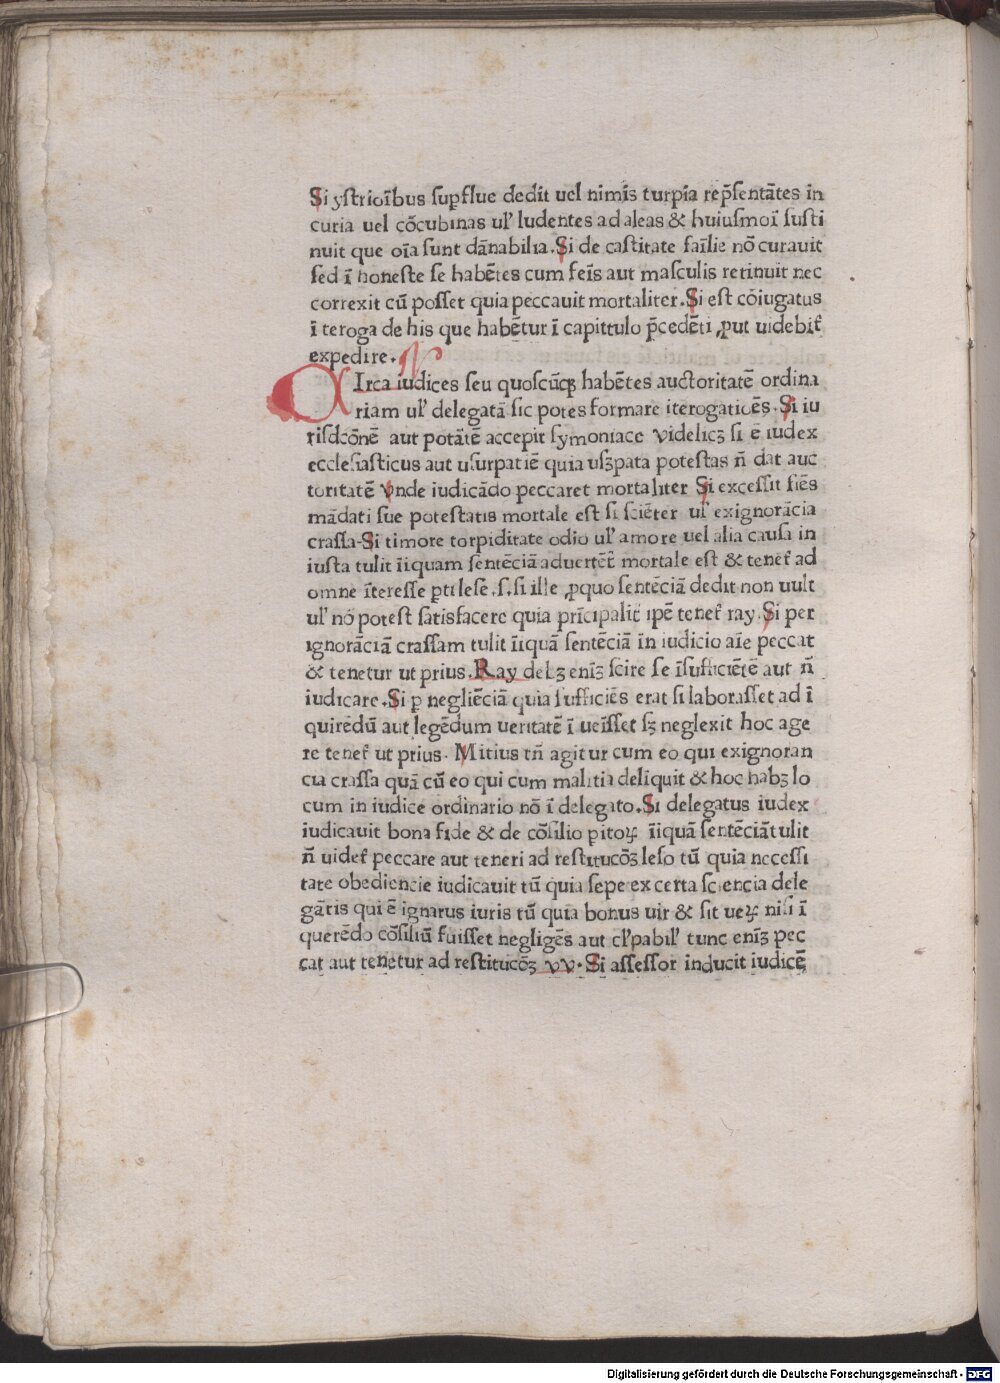 Si ystrioībus supflue dedit uel nimīs turpia rep̄sentātes in
curia uel cōcubinas ul' ludentes ad aleas & huiusmoī susti
nuit que oīa sunt dānabilia. Si de castitate faīlie nō curauit
sed ī honeste se habētes cum feīs aut masculis retinuit nec
correxit cū posset quia peccauit mortaliter. Si est cōiugatus
ī teroga de his que habētur ī capittulo p̄cedēti ꝓut uidebit̄
expedire.
CIrca iudices seu quoscūqꝫ habētes auctoritatē ordina
riam ul' delegatā sic potes formare iterogatiōēs. Si iu
risdcōnē aut potātē accepit symoniace videlicꝫ si ē iudex
ecclesiasticus aut usurpatiē quia usꝫpata potestas n̄ dat auc
toritatē vnde iudicādo peccaret mortaliter Si excessit fiēs
mādati sue potestatis mortale est si sciēter ul' ex ignorācia
crassa. Si timore torpiditate odio ul' amore uel alia causa in
iusta tulit īiquam sentēciā aduertēt̄ mortale est & tenet̄ ad
omne īteresse ꝑti lese. s. si ille ꝓ quo sentēciā dedit non uult
ul' nō potest satisfacere quia prīcipalit̄ ipē tenet̄ ray. Si per
ignorāciā crassam tulit īiquā sentēciā in iudicio aīe peccat
& tenetur ut prius. Ray delꝫ enīꝫ scire se īsufficiētē aut n̄
iudicare. Si ꝑ negliēciā quia sufficiēs erat si laborasset ad ī
quirēdū aut legēdum ueritatē ī ueīsset sꝫ neglexit hoc age
re tenet̄ ut prius. Mitius tn̄ agitur cum eo qui ex ignoran
cia crassa quā cū eo qui cum malitia deliquit & hoc habꝫ lo
cum in iudice ordinario nō ī delegato. Si delegatus iudex
iudicauit bona fide & de cōsilio pitoꝝ īiquā sentēciā tulit
n̄ uidet̄ peccare aut teneri ad restitucōꝫ leso tū quia necessi
tate obediencie iudicauit tū quia sepe ex certa sciencia dele
gātis qui ē ignarus iuris tū quia bonus uir & sit ueꝝ nisi ī
querēdo cōsiliū fuisset negligēs aut cl'pabil' tunc enīꝫ pec
cat aut tenetur ad restitucōꝫ vv. Si assessor inducit iudicē
Digitalisierung gefördert durch die Deutsche Forschungsgemeinschaft - DFG